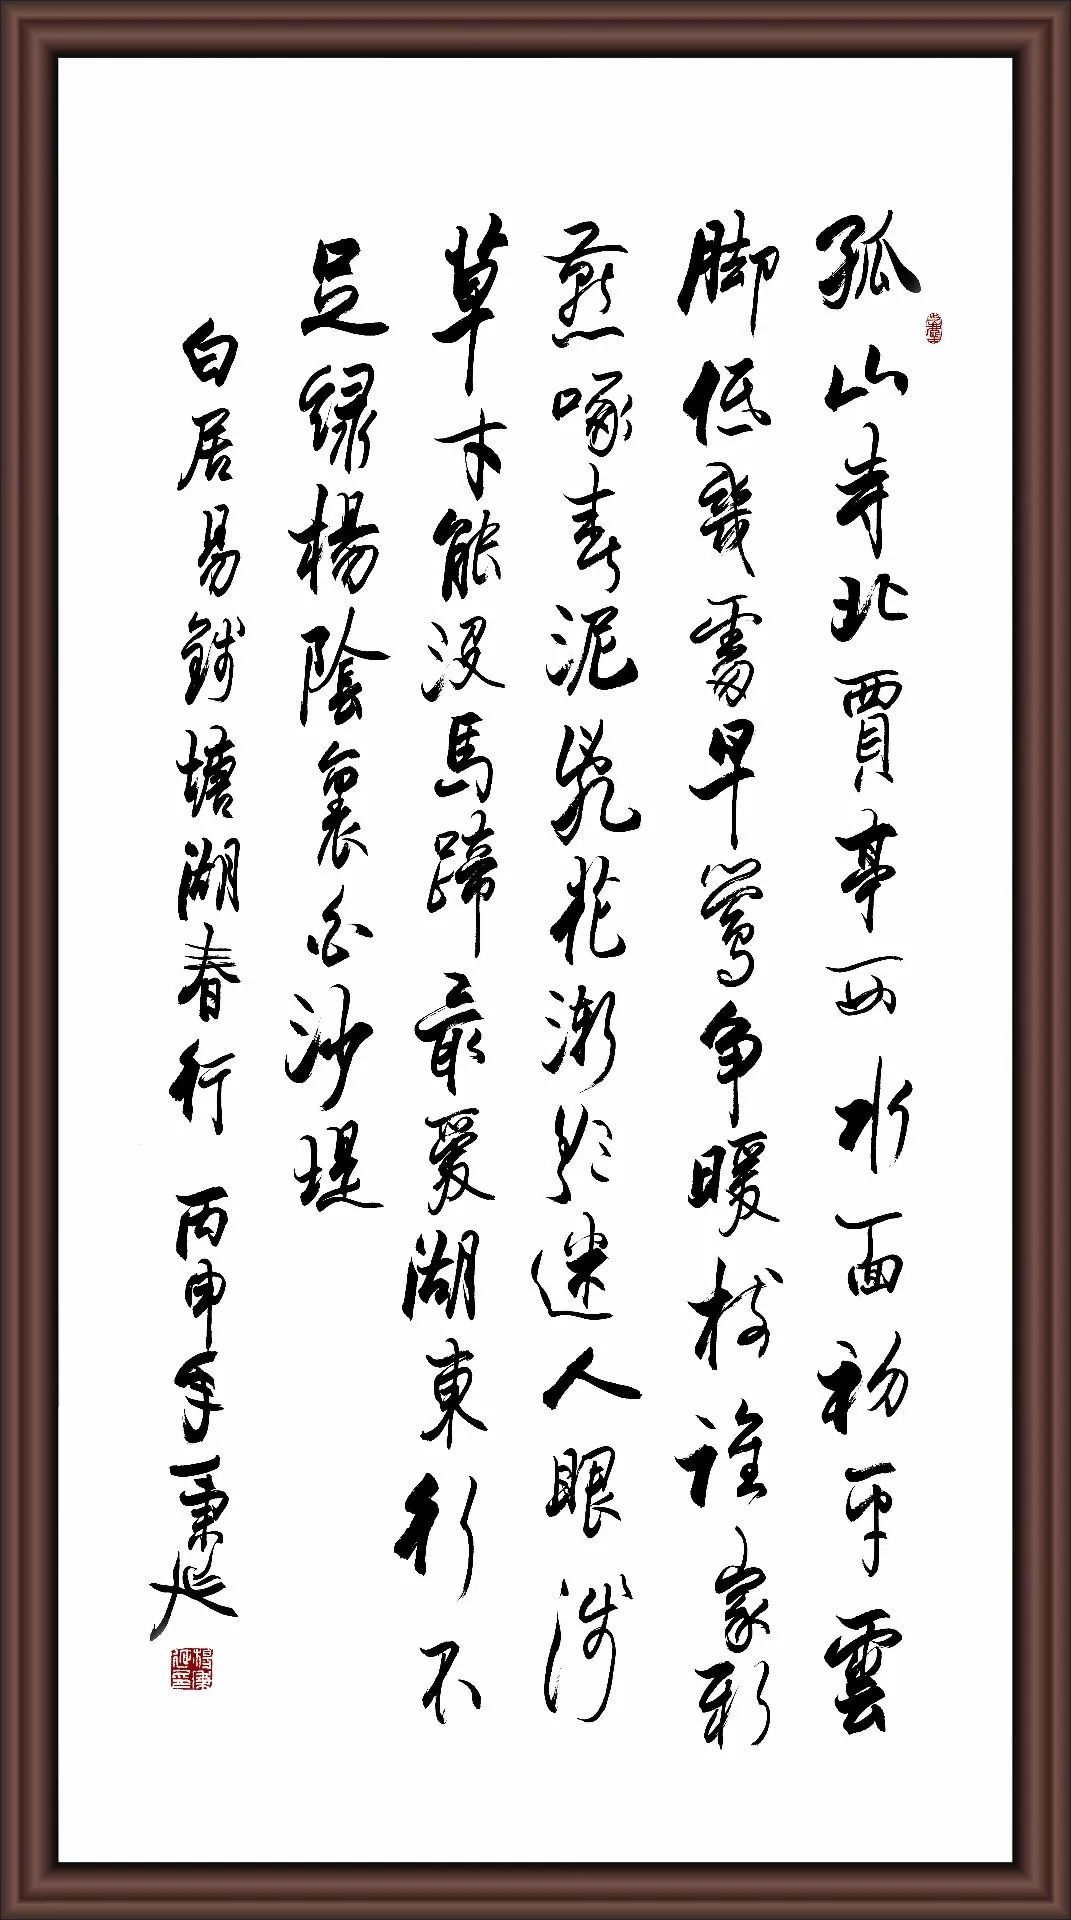 孤山寺北賈亭西水面初平雲
脚低幾處早鶯争暖樹誰家新
燕啄春泥亂花漸欲迷人眼淺
草才能没馬蹄最愛湖東行不
足緑楊陰裏白沙堤
白居易錢塘湖春行 丙申年秉延